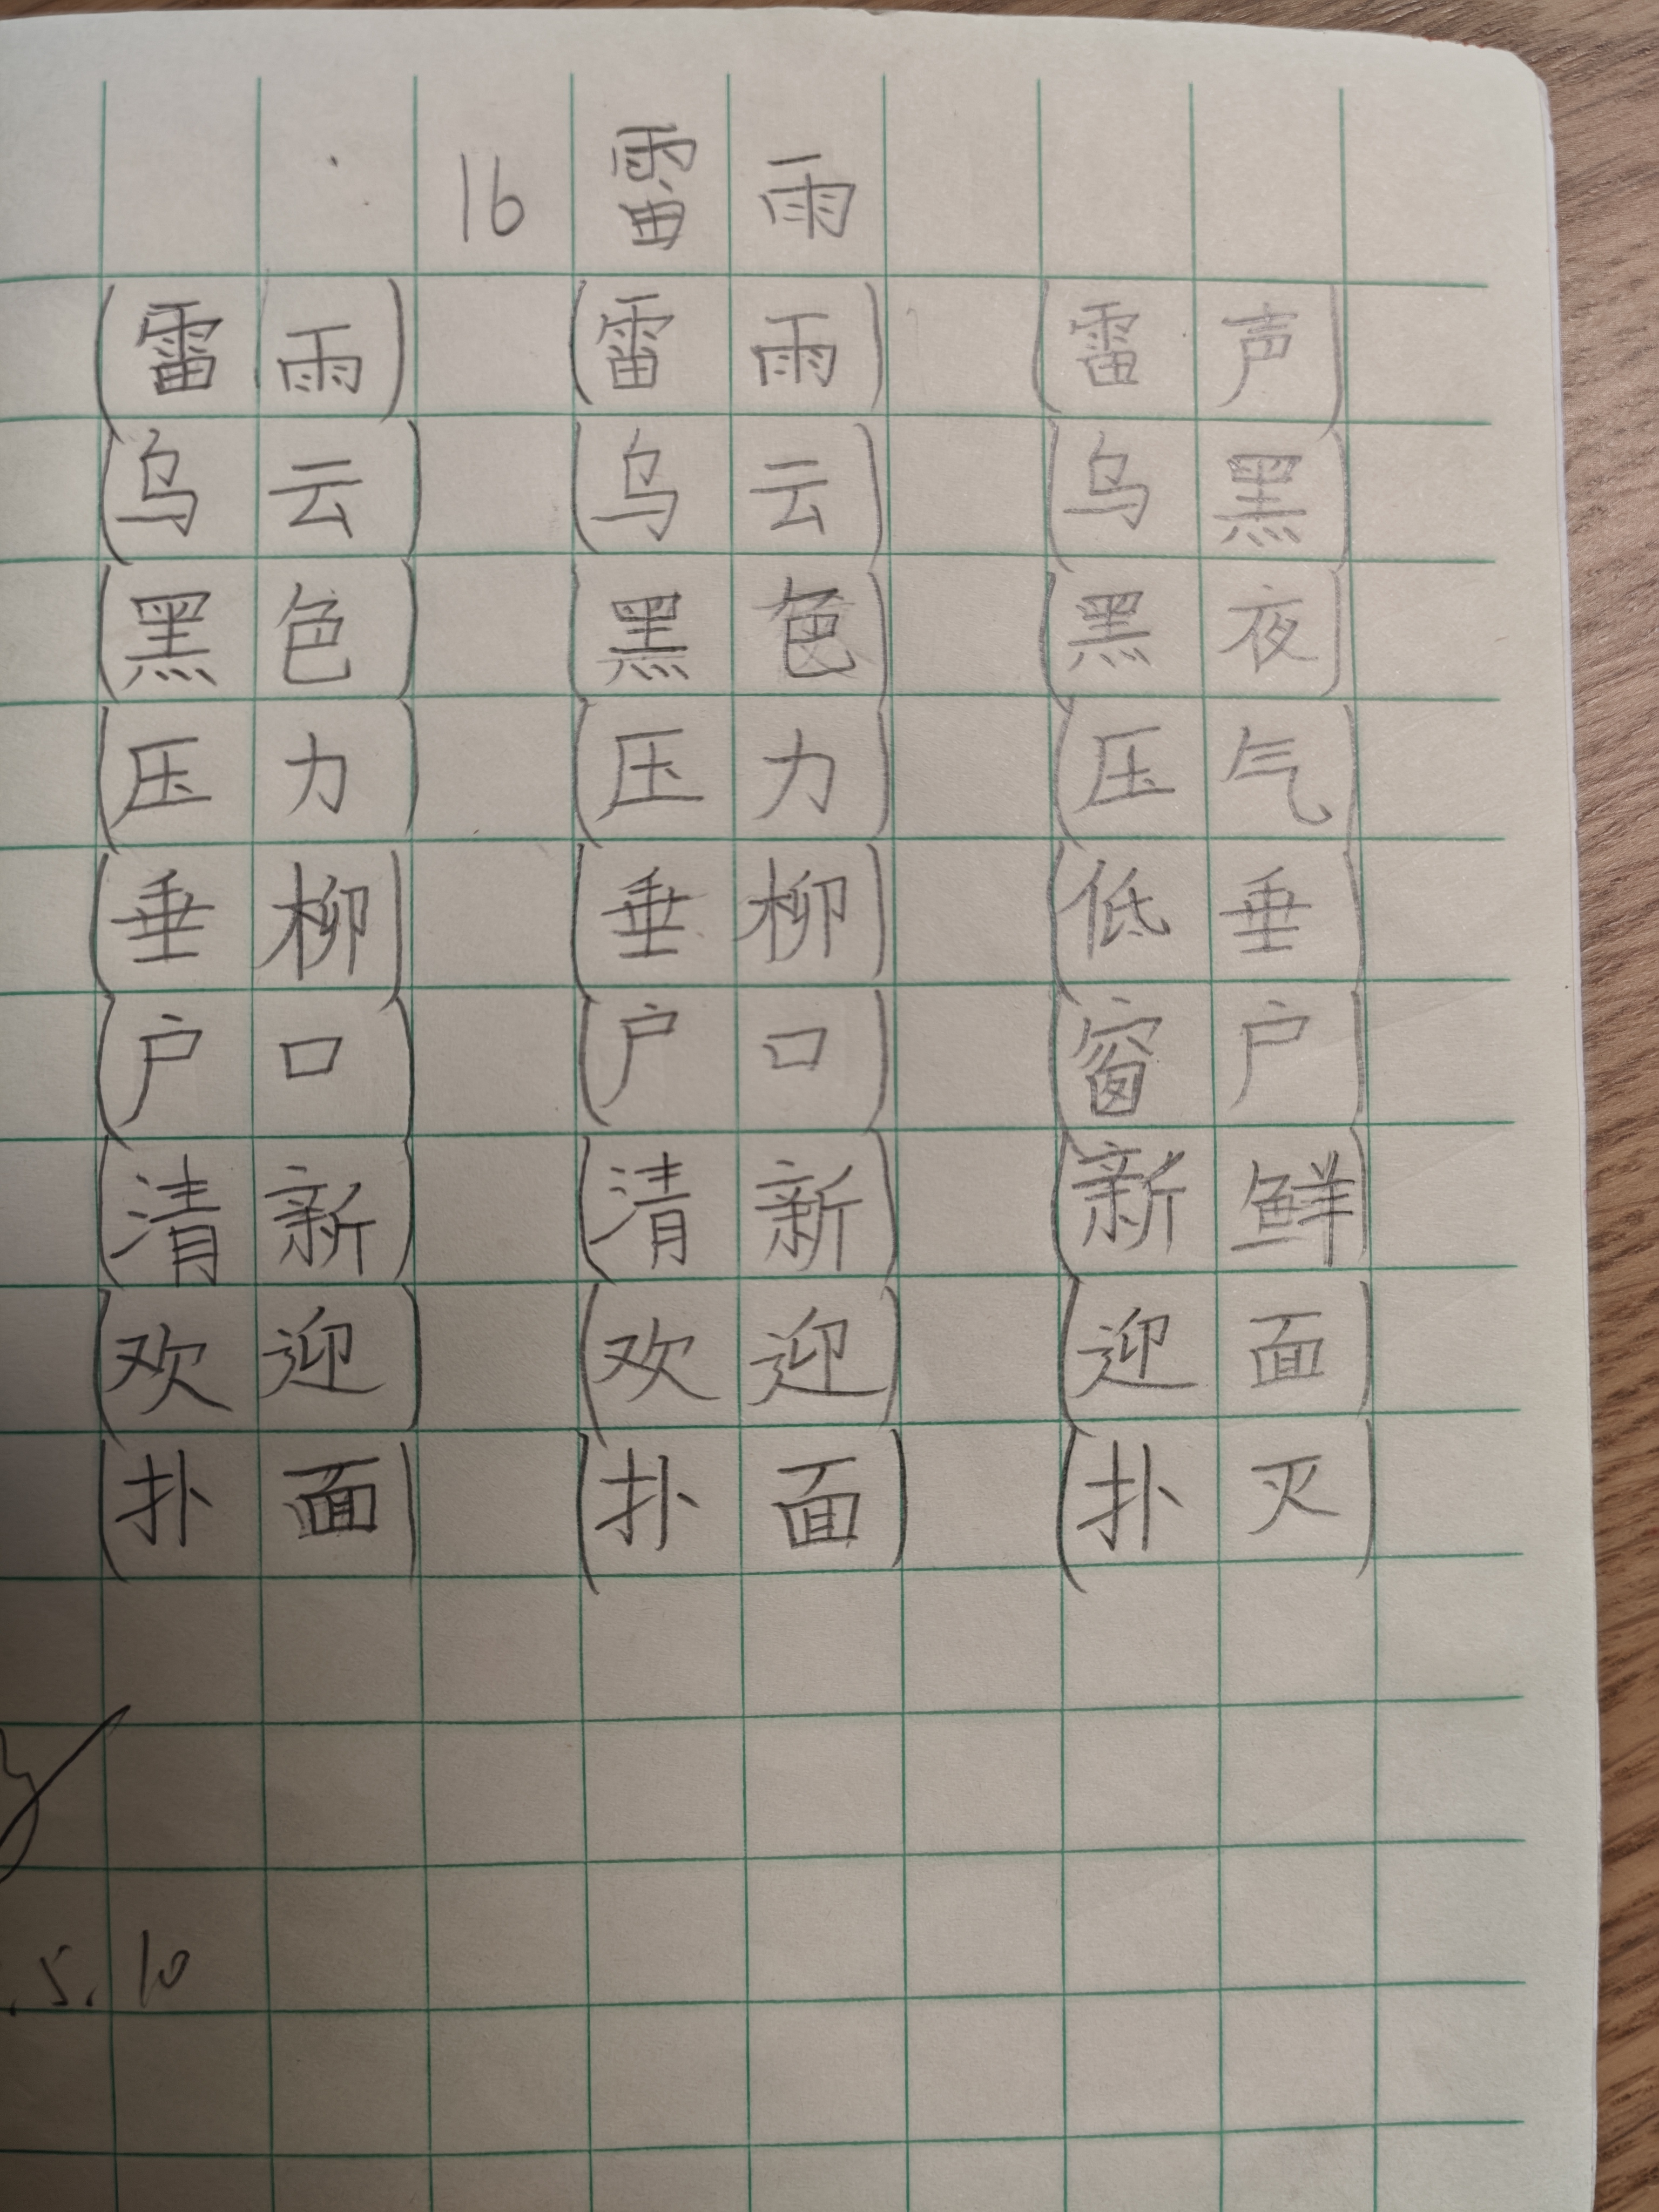 16 雷雨
(雷雨) (雷雨) (雷声)
(乌云) (乌云) (乌黑)
(黑色) (黑色) (黑夜)
(压力) (压力) (压气)
(垂柳) (垂柳) (低垂)
(户口) (户口) (窗户)
(清新) (清新) (新鲜)
(欢迎) (欢迎) (迎面)
(扑面) (扑面) (扑灭)
.5.10